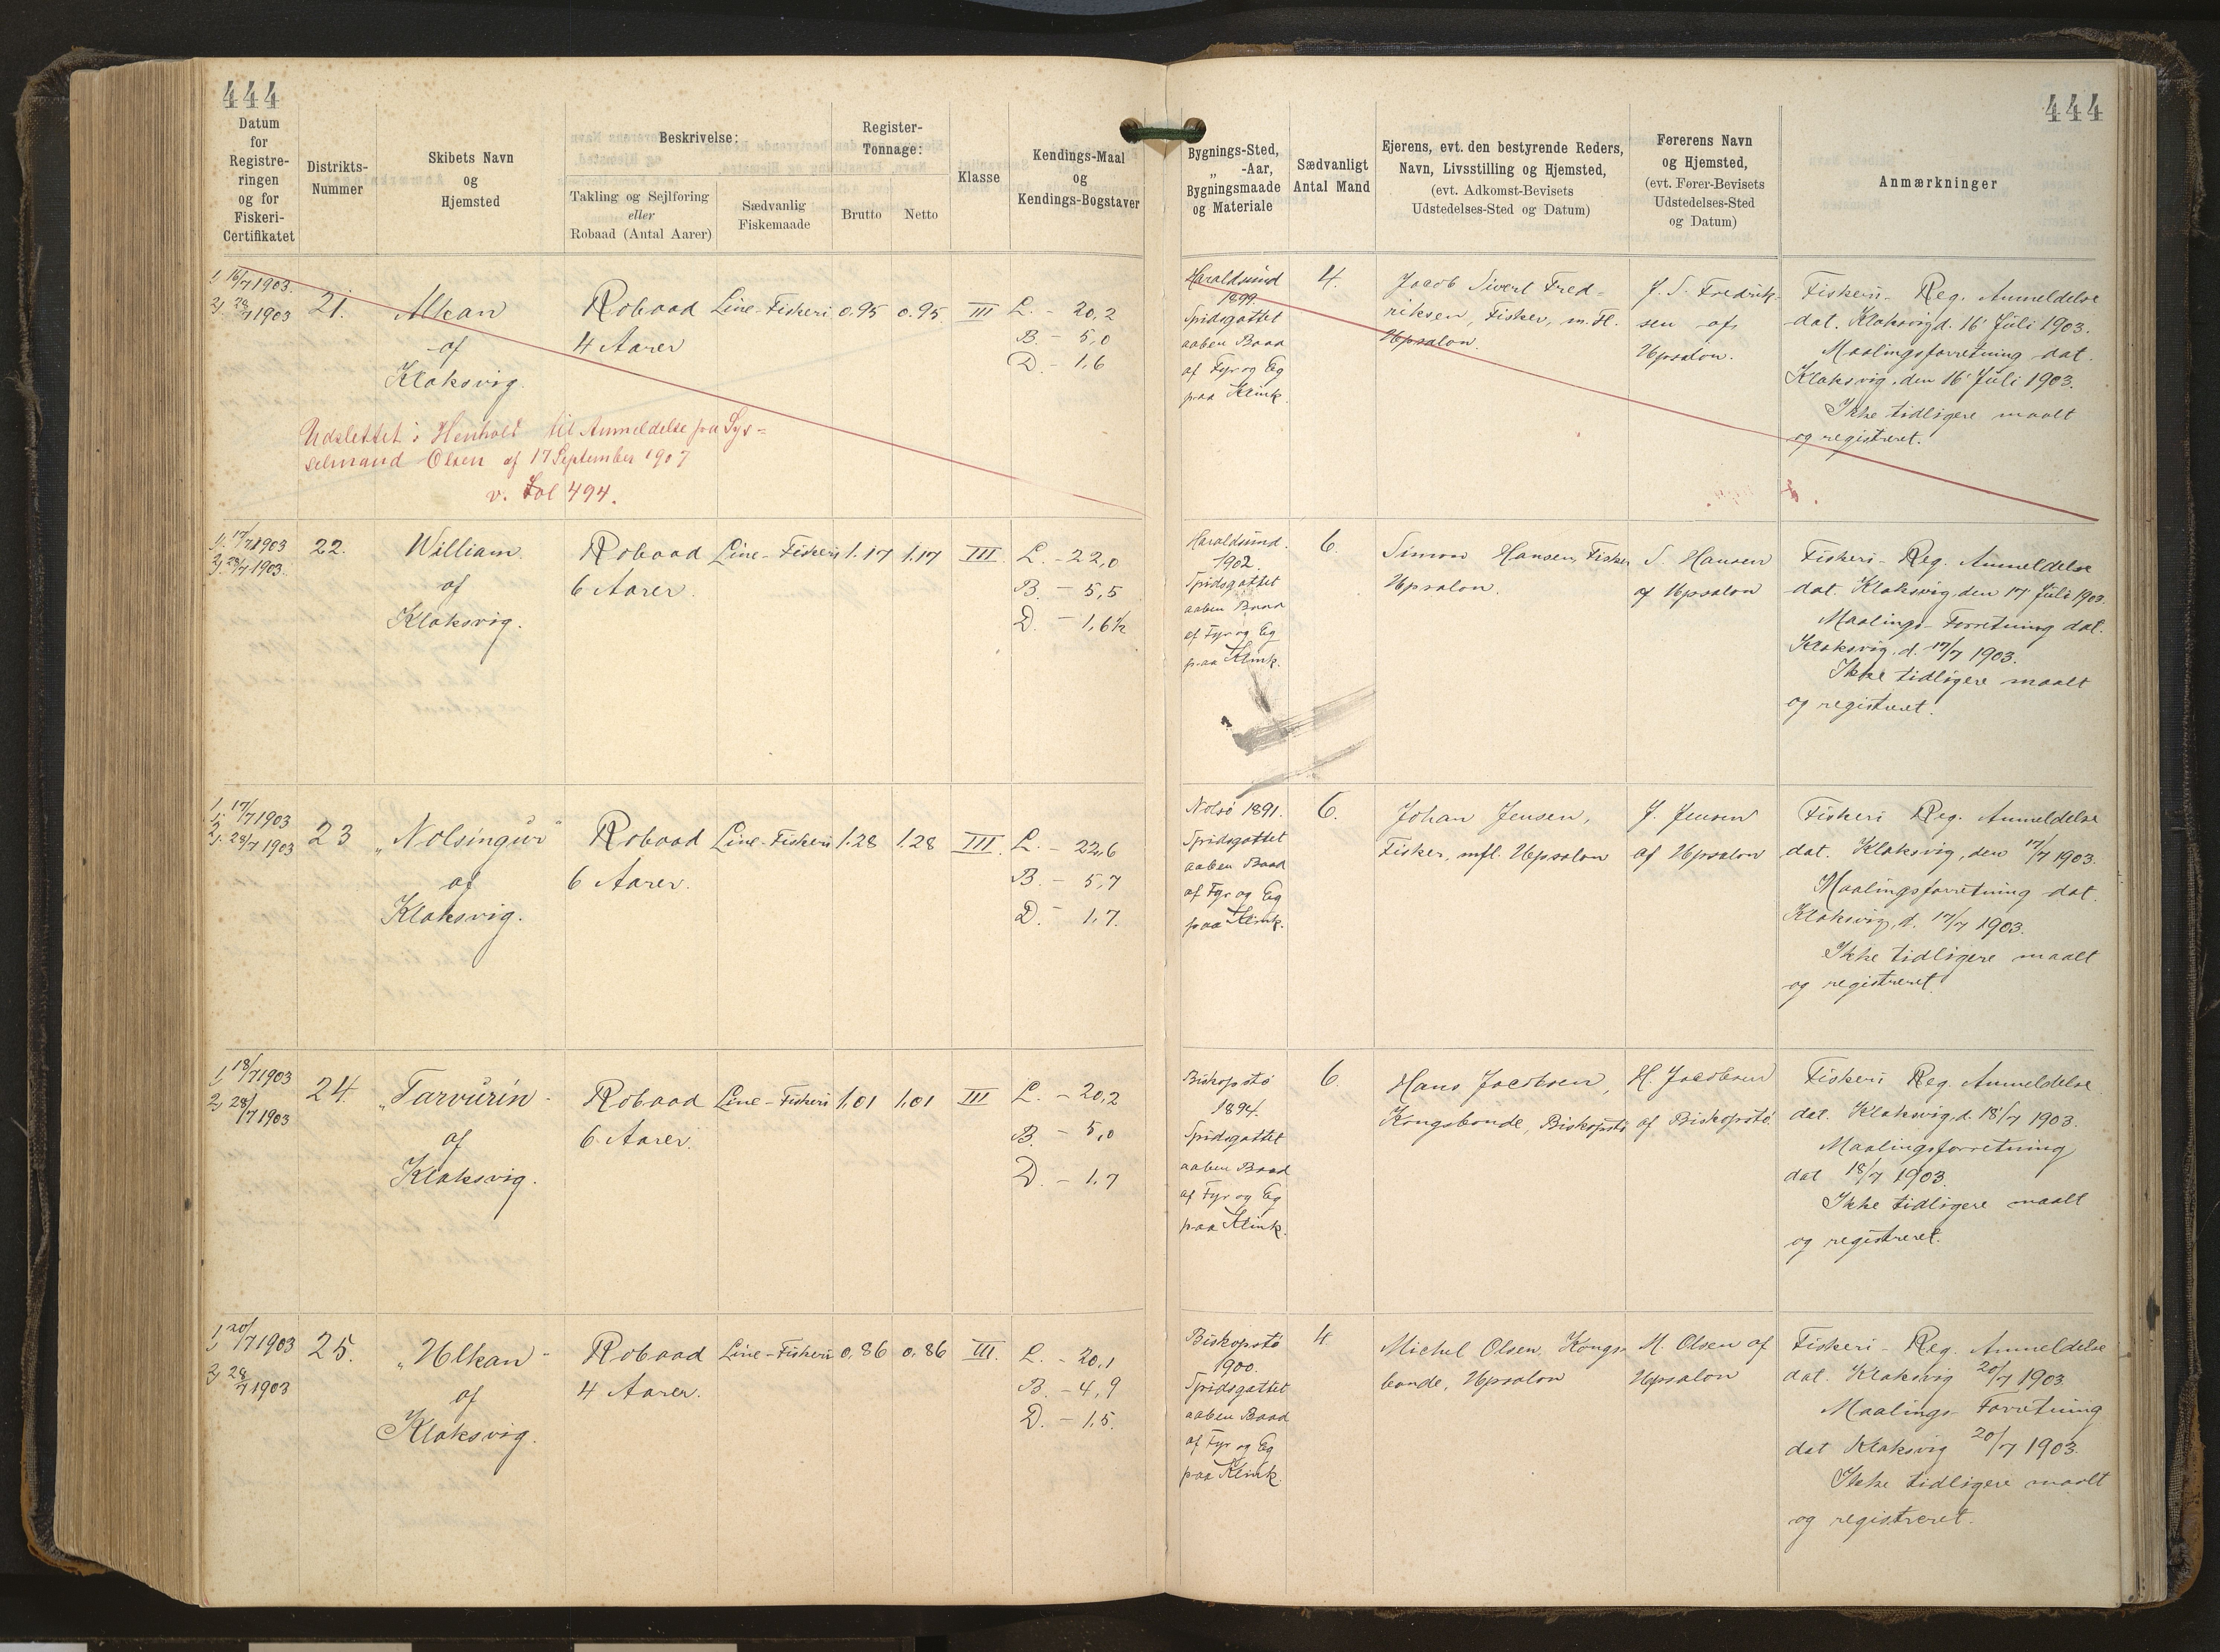 444
444
Datum
for
Registre-
ringen
og for
Fiskeri-
Certifikatet
Distrikts-
Nummer
Skibets Navn
og
Hjemsted
Beskrivelse:
Takling og Sejlføring
eller
Robaad (Antal Aarer)
Sædvanlig
Fiskemaade
Register-
Tonnage:
Brutto
Netto
Klasse
Kendings-Maal
og
Kendings-Bogstaver
Bygnings-Sted,
„ -Aar,
Bygningsmaade
og Materiale
Sædvanligt
Antal Mand
Ejerens, evt. den bestyrende Reders,
Navn, Livsstilling og Hjemsted,
(evt. Adkomst-Bevisets
Udstedelses-Sted og Datum)
Førerens Navn
og Hjemsted,
(evt. Fører-Bevisets
Udstedelses-Sted
og Datum)
Anmærkninger
1, 16/7 1903.
2, 28/7 1903
21.
Alkan
af
Klaksvig.
Robaad
4 Aarer
Line-Fiskeri
0.95
0.95
III
L. - 20,2
B. - 5,0
D. - 1,6
Haraldsund
1899.
Spidsgattet
aaben Baad
af Fyr og Eg
paa Klink.
4.
Jacob Sivert Fred-
riksen, Fisker, m. Fl.
Upsalon.
J. S. Fredrik-
sen af
Upsalon.
Fiskeri- Reg. Anmeldelse
dat. Klaksvig d. 16' Juli 1903.
Maalingsforretning dat.
Klaksvig, den 16' Juli 1903.
Ikke tidligere maalt
og registreret.
Udslettet i Henhold til Anmeldelse fra Sys-
selmand Olsen af 17 September 1907
v. Fol 494.
1, 17/7 1903
2, 28/7 1903.
22.
William
af
Klaksvig.
Robaad
6 Aarer.
Line-Fiskeri
1.17
1,17
III.
L. - 22,0
B. - 5,5
D. - 1,6½
Haraldsund.
1902.
Spidsgattet
aaben Baad
af Fyr og Eg
paa Klink.
6.
Simon Hansen, Fisker
Upsalon.
S. Hansen
af Upsalon
Fiskeri- Reg. Anmeldelse
dat. Klaksvig, den 17' Juli 1903.
Maalings-Forretning dat.
Klaksvig, d. 17/7 1903.
Ikke tidligere maalt
og registreret.
1, 17/7 1903
2, 28/7 1903
23
„Nolsingur"
af
Klaksvig.
Robaad
6 Aarer.
Line-Fiskeri
1.28
1.28
III.
L. - 22,6
B. - 5,7
D. - 1,7.
Nolsö 1891.
Spidsgattet
aaben Baad
af Fyr og Eg
paa Klink.
6.
Johan Jensen,
Fisker, mfl. Upsalon
J. Jensen
af Upsalon
Fiskeri Reg. Anmeldelse
dat. Klaksvig, den 17/7 1903.
Maalingsforretning dat.
Klaksvig, d. 17/7 1903.
Ikke tidligere maalt
og registreret
1, 18/7 1903
2, 28/7 1903
24.
„Tarvurin"
af
Klaksvig.
Robaad
6 Aarer.
Line-Fiskeri
1,01
1,01
III
L. - 20,2
B. - 5,0
D. - 1,7
Biskopstö
1894.
Spidsgattet
aaben Baad
af Fyr og Eg
paa Klink.
6.
Hans Jacobsen,
Kongsbonde, Biskopstö
H. Jacobsen
af Biskopstö.
Fiskeri Reg. Anmeldelse
dat. Klaksvig, d. 18/7 1903.
Maalingsforretning
dat 18/7 1903.
Ikke tidligere maalt
og registreret.
1, 20/7 1903
2, 28/7 1903
25.
„Ulkan"
af
Klaksvig.
Robaad
4 Aarer.
Line-Fiskeri
0,86
0,86
III.
L. - 20,1
B. - 4,9
D. - 1,5.
Biskopstö
1900.
Spidsgattet
aaben Baad
af Fyr og Eg
paa Klink.
4
Michel Olsen, Kongs-
bonde, Upsalon
M. Olsen af
Upsalon
Fiskeri- Reg. Anmeldelse
dat. Klaksvig 20/7 1903
Maalings- Forretning
dat Klaksvig 20/7 1903.
Ikke tidligere maalt
og registreret.